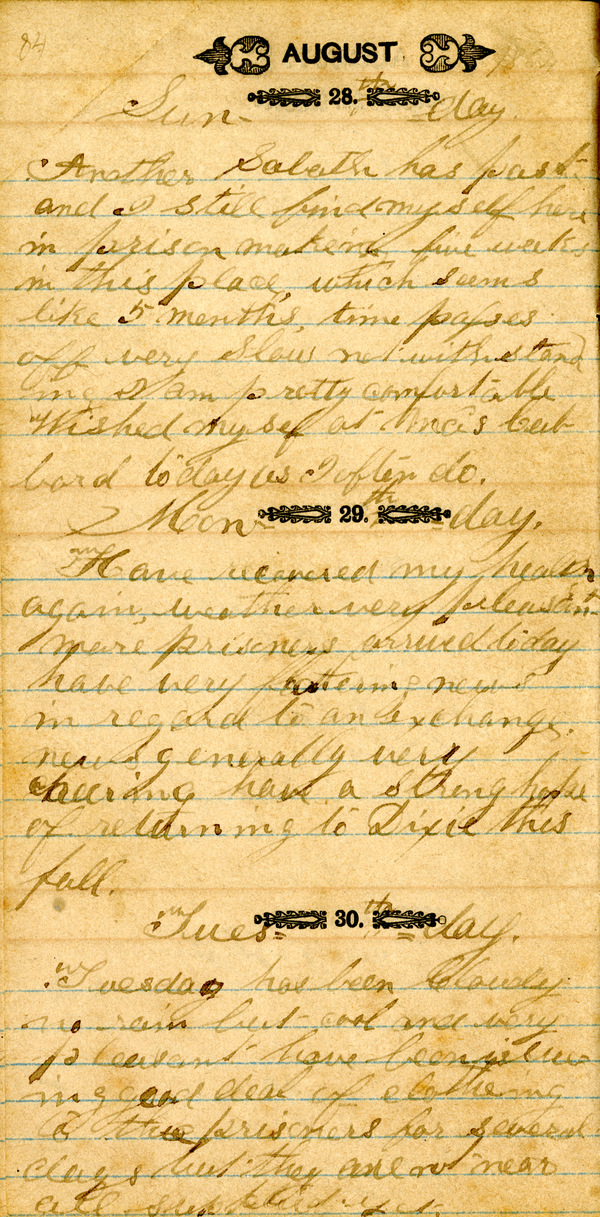 84
AUGUST
28.th
Sun- day.
Another Sabath has past
and I still find myself here
in prison makeing five weaks
in this place, which seems
like 5 months, time passes
off very slow notwithstand
ing I am pretty comfortable
Wished mysef at
bard today as I often do.
29.th
Mon- day.
Have recovered my health
again, weather very pleasant
more prisoners arrived today
have very flattering news
in regard to an Exchange.
news generally very
cheering have a strong hope
of returning to Dixie this
fall.
30.th
Tues- day.
Tuesday has been Cloudy
no rain but cool and very
pleasant have been issu
ing good deal of clotheing
to the prisoners for several
days but they are now near
all supplied yet.